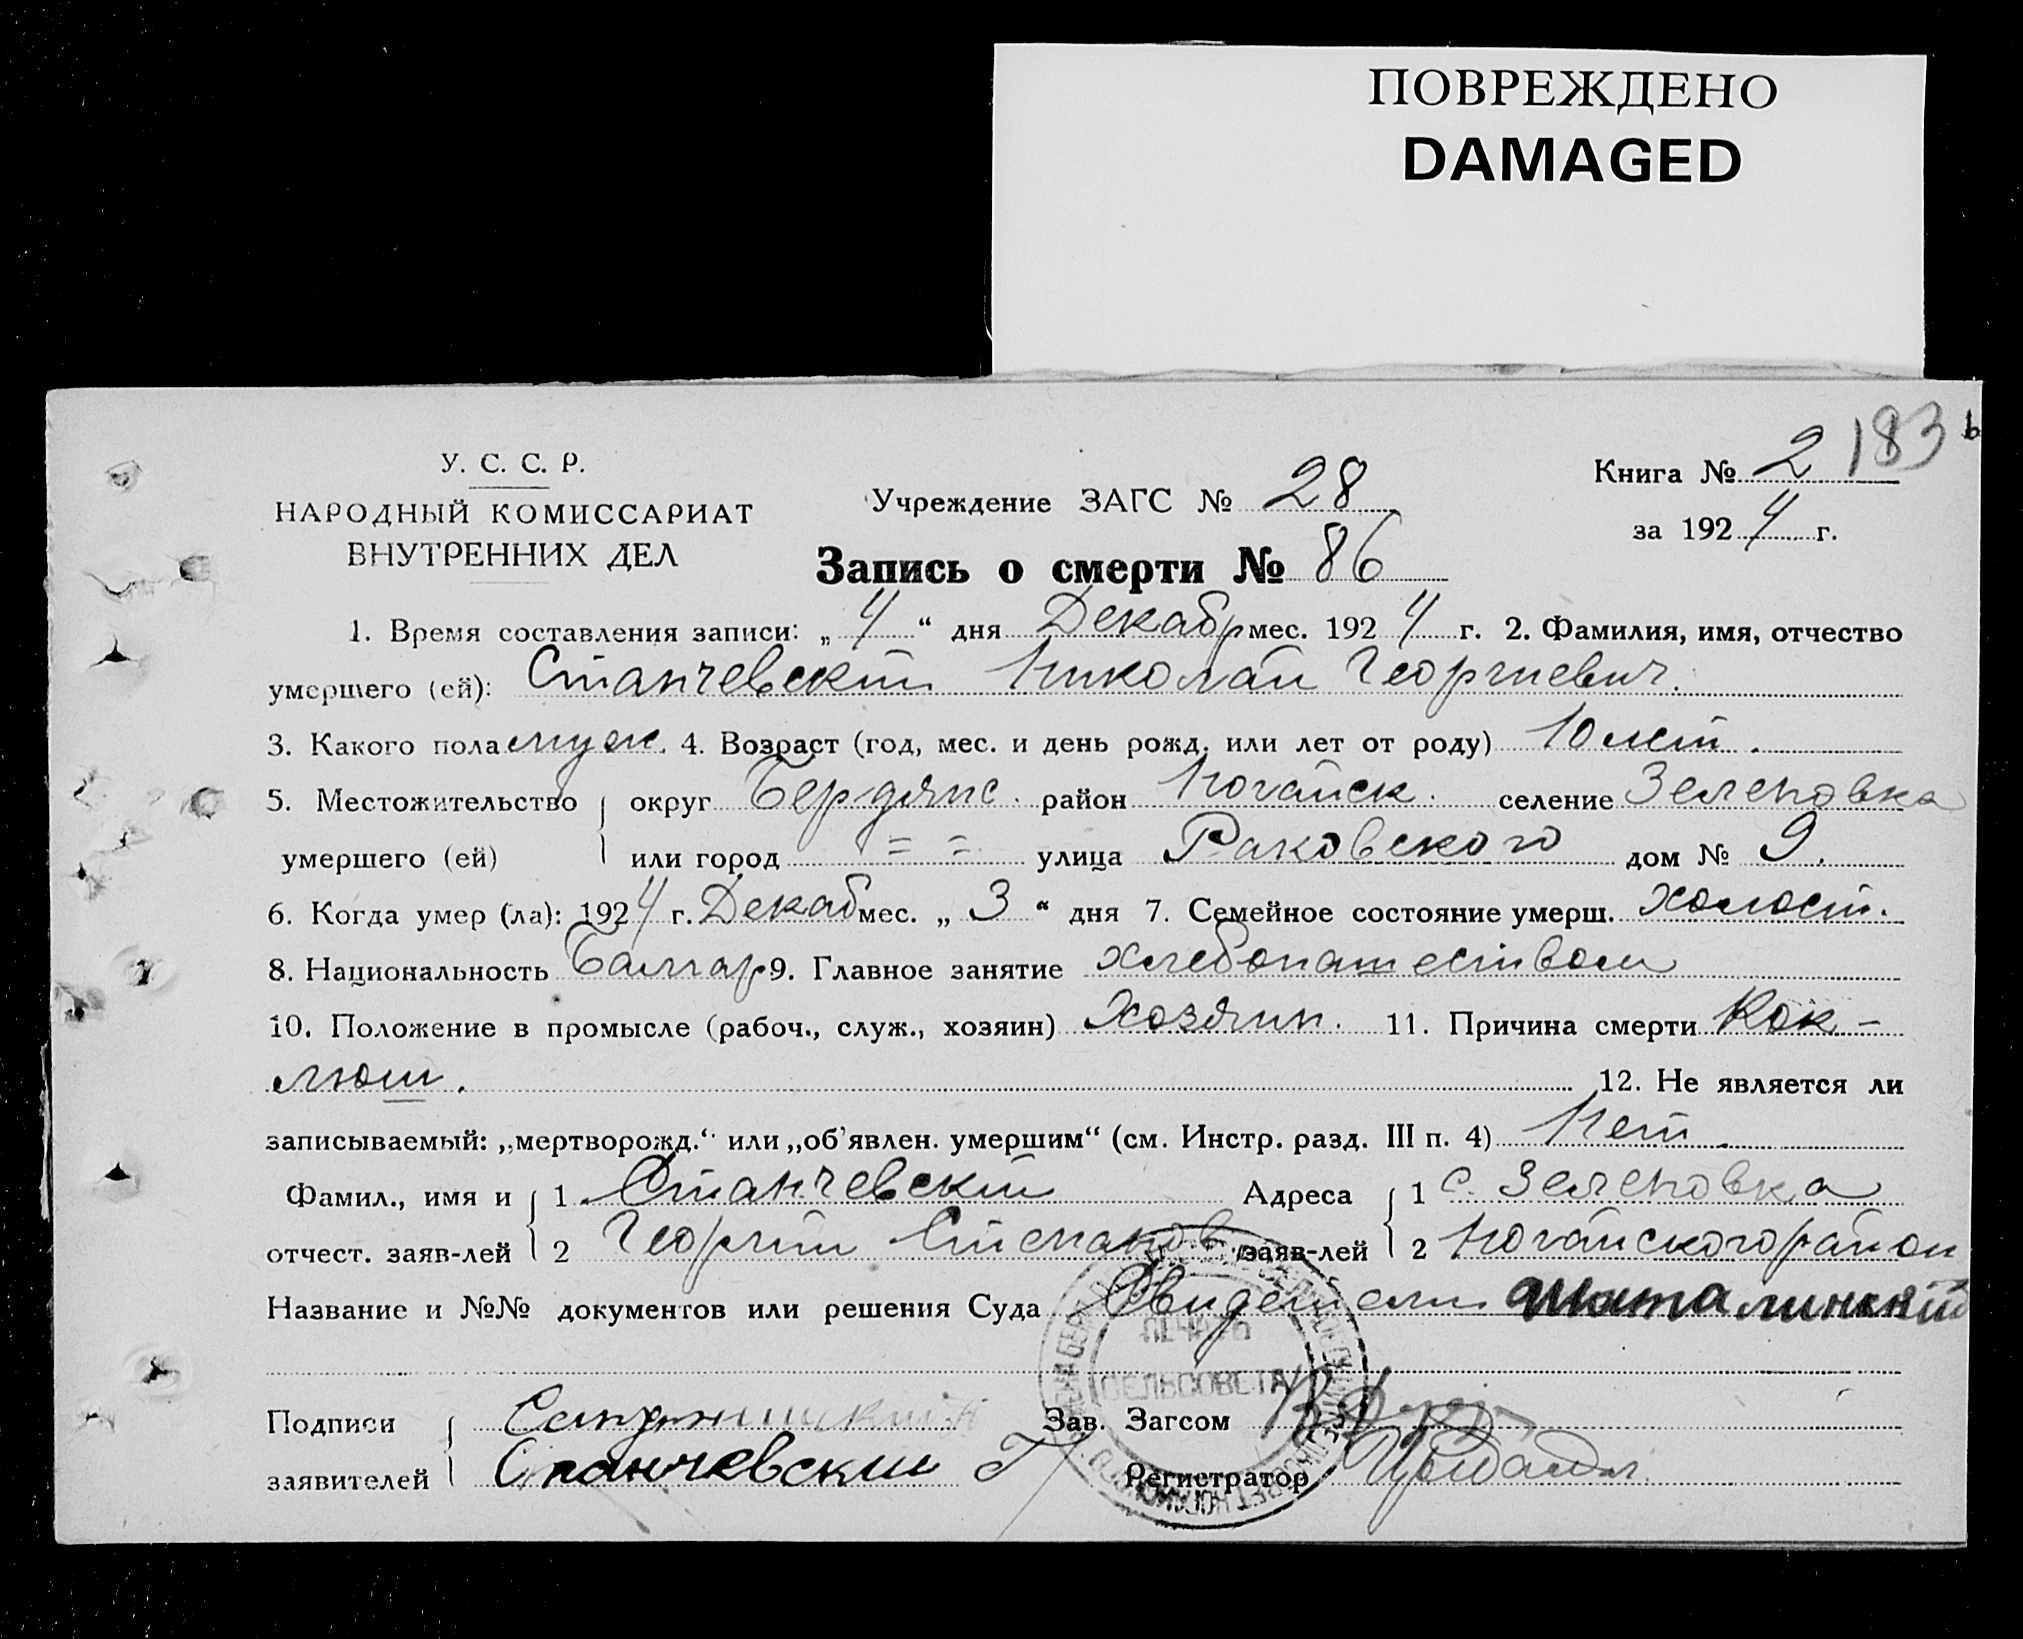 ПОВРЕЖДЕНО
DAMAGED
183 b
У. С. С. Р.
НАРОДНЫЙ КОМИССАРИАТ
ВНУТРЕННИХ ДЕЛ
Учреждение ЗАГС № 28
Книга № 2
за 1924 г.
Запись о смерти № 86
1. Время составления записи: „ 4 “ дня Декабр мес. 1924 г. 2. Фамилия, имя, отчество
умершего (ей): Станчевский Николай Георгиевич.
3. Какого пола муж. 4. Возраст (год, мес. и день рожд. или лет от роду) 10 лет.
5. Местожительство округ Бердянс. район Ногайск. селение Зеленовка
умершего (ей) или город = = улица Раковского дом № 9.
6. Когда умер (ла): 1924 г. Декаб мес. „ 3 “ дня 7. Семейное состояние умерш. холост.
8. Национальность Болгар 9. Главное занятие хлебопашеством
10. Положение в промысле (рабоч., служ., хозяин) Хозяин. 11. Причина смерти Кок-
люш. 12. Не является ли
записываемый: „мертворожд.“ или „об’явлен. умершим“ (см. Инстр. разд. III п. 4) Нет.
Фамил., имя и 1 Станчевский Адреса 1 с. Зеленовка
отчест. заяв-лей 2 Георгий Степанов заяв-лей 2 Ногайского район
Название и №№ документов или решения Суда Свидетели
ПЕЧАТЬ
СЕЛЬСОВЕТА
Подписи Зав. Загсом
заявителей Станчевский Г Регистратор